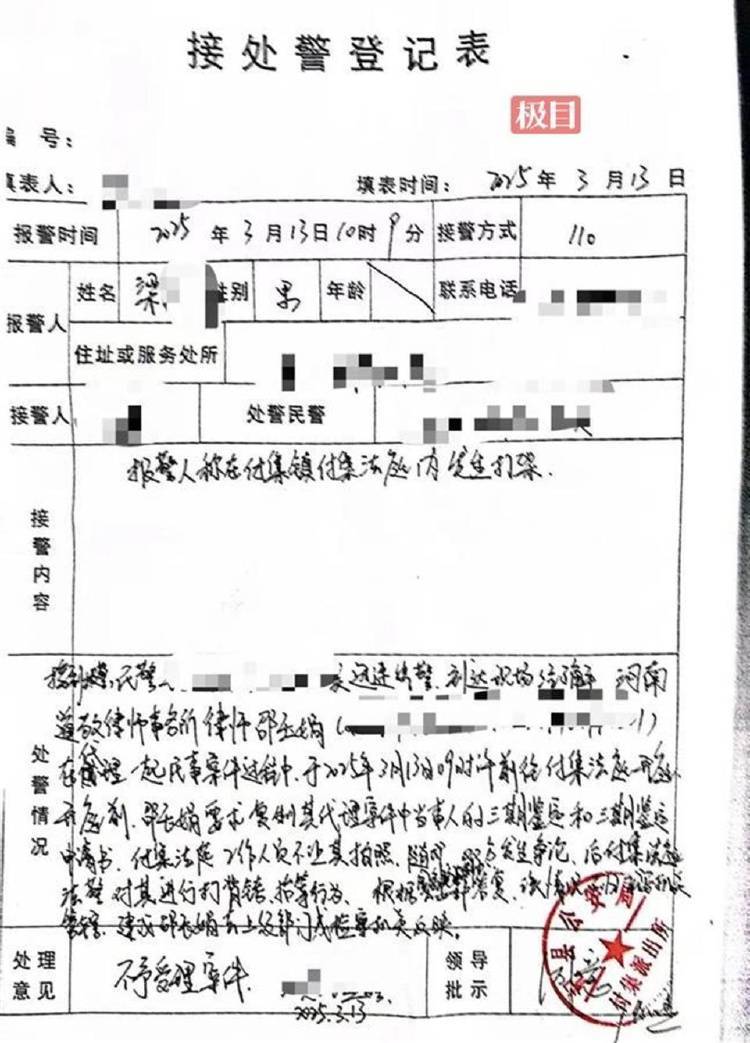 接处警登记表
极目
编号：
填表人： 填表时间：2025年3月13日
报警时间 2025年3月13日10时9分 接警方式 110
报警人 姓名 梁 性别 男 年龄 联系电话
住址或服务处所
接警人 处警民警
接警内容
报警人称在付集镇付集法庭内发生打架.
处警情况
民警 迅速出警,到达现场经了解 河南
律师事务所律师邵 娟(
在代理一起民事案件过程中,于2025年3月13日09时许前往付集法庭开庭,
开庭前, 娟要求复制其代理案件中当事人的三期鉴定和三期鉴定
申请书,付集法庭工作人员不让其拍照,随后,双方发生争论,后付集法庭
法警对其进行打背铐、掐等行为. 根据 答复,
建议 娟去上级部门或检察机关反映.
处理意见 不予受理案件. 领导批示
2025.3.13
县公安局
付集派出所